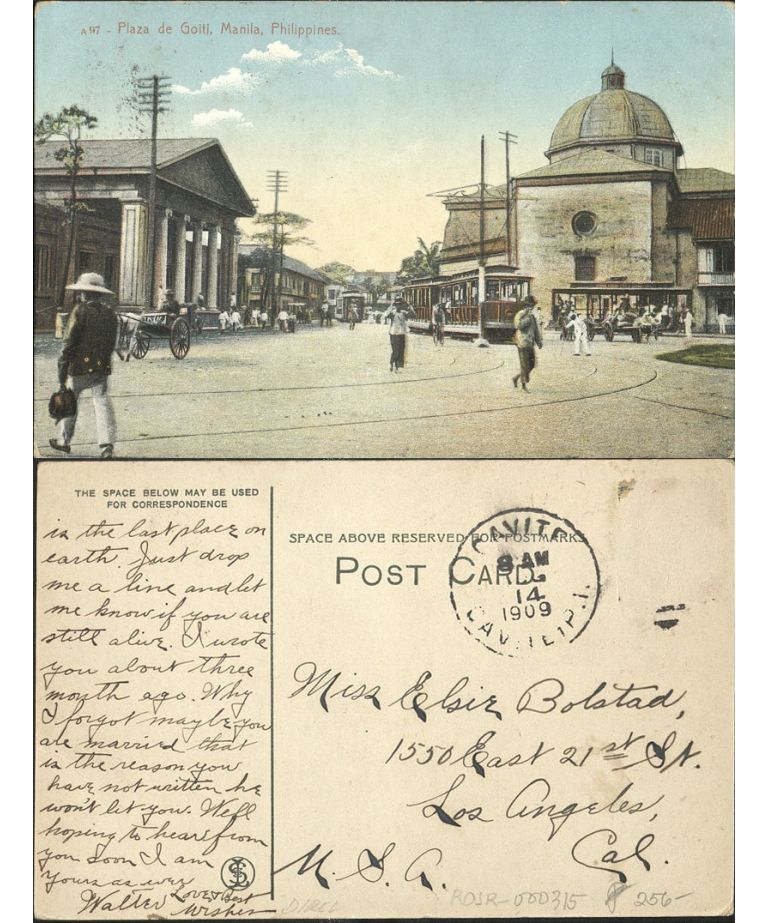 A 97 - Plaza de Goiti, Manila, Philippines.
THE SPACE BELOW MAY BE USED
FOR CORRESPONDENCE
in the last place on
earth. Just drop
me a line and let
me know if you are
still alive. I wrote
you about three
month ago. Why
I forgot maybe you
are married that
is the reason you
have not written he
won't let you. Well
hoping to hear from
you soon I am
yours as ever
Walter Love & Best
wishes
SPACE ABOVE RESERVED FOR POSTMARKS
POST CARD.
CAVITE
8 AM
14
1909
CAVITE, P.I.
Miss Elsie Bolstad,
1550 East 21st St.
Los Angeles,
Cal.
U. S. A.
ROSR-000315
256-